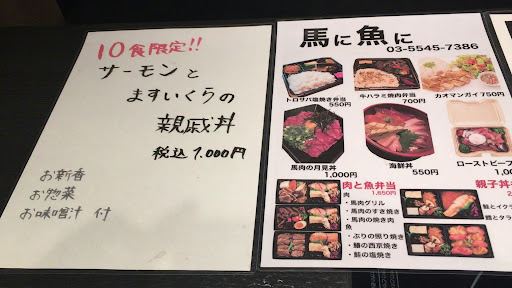 10食限定!!
サーモンと
ますいくらの
親戚丼
税込 1.000円
お新香
お惣菜
お味噌汁 付
馬に魚に
03-5545-7386
トロサバ塩焼き弁当
550円
牛ハラミ焼肉弁当
700円
カオマンガイ 750円
馬肉の月見丼
1,000円
海鮮丼
550円
ローストビーフ
1,00
肉と魚弁当
1,650円
肉
・馬肉グリル
・馬肉のすき焼き
・馬肉の焼き肉
魚
・ぶりの照り焼き
・鰆の西京焼き
・鮭の塩焼き
親子丼
鮭とイクラ
鱈とタラ